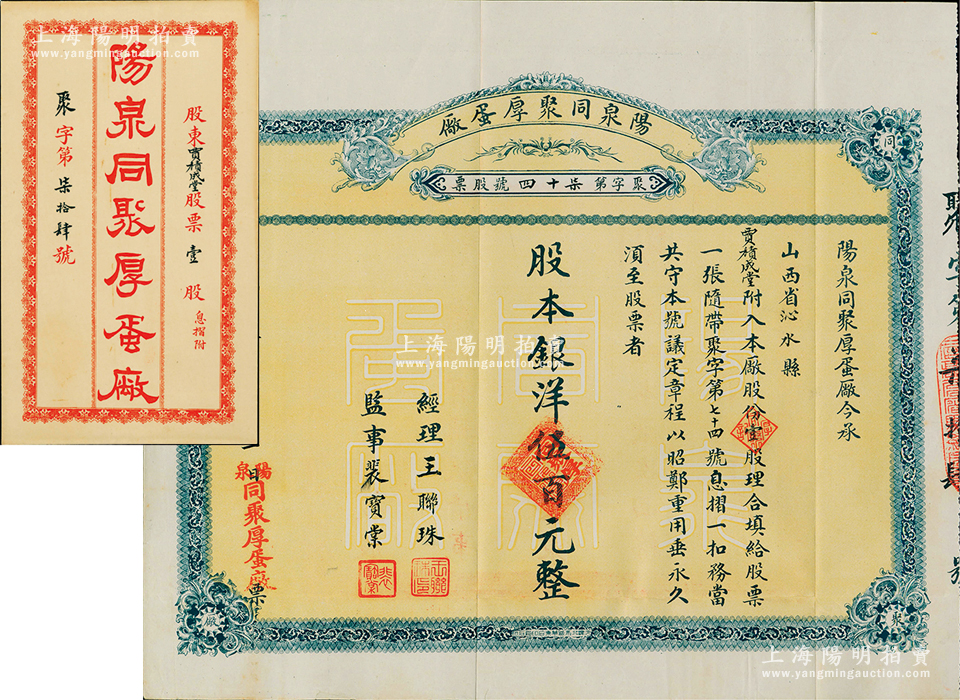 上海陽明拍賣
www.yangmingauction.com
股東賈積成堂股票壹股
息摺附
陽泉同聚厚蛋廠
聚字第柒拾肆號
陽泉同聚厚蛋廠
聚字第柒十四號股票
同
聚
廠
陽泉同聚厚蛋廠今承
山西省沁水縣
賈積成堂附入本廠股份壹股理合填給股票
一張隨帶聚字第七十四號息摺一扣務當
共守本號議定章程以昭鄭重用垂永久
須至股票者
股本銀洋伍百元整
經理王聯珠
監事裴寶棠
陽泉
同聚厚蛋廠票
柒拾肆號
上海陽明拍賣
www.yangmingauction.com
上海陽明拍賣
www.yangmingauction.com